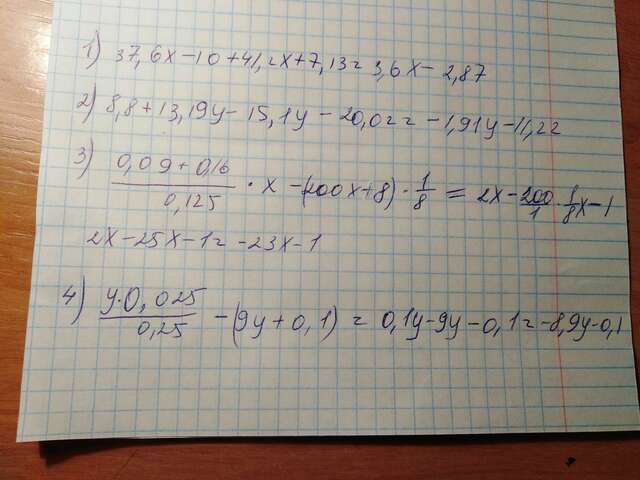 1) 37,6x-10+41,2x+7,13= 3,6x- 2,87
2) 8,8+13,19y- 15,1y - 20,02= -1,91y-11,22
3) (0,09+0,16)/0,125 · x -(200x+8) · 1/8 = 2x- 200/1 · 1/8x-1
2x-25x-1= -23x-1
4) y·0,025/0,25 -(9y+0,1)= 0,1y-9y-0,1=-8,9y-0,1